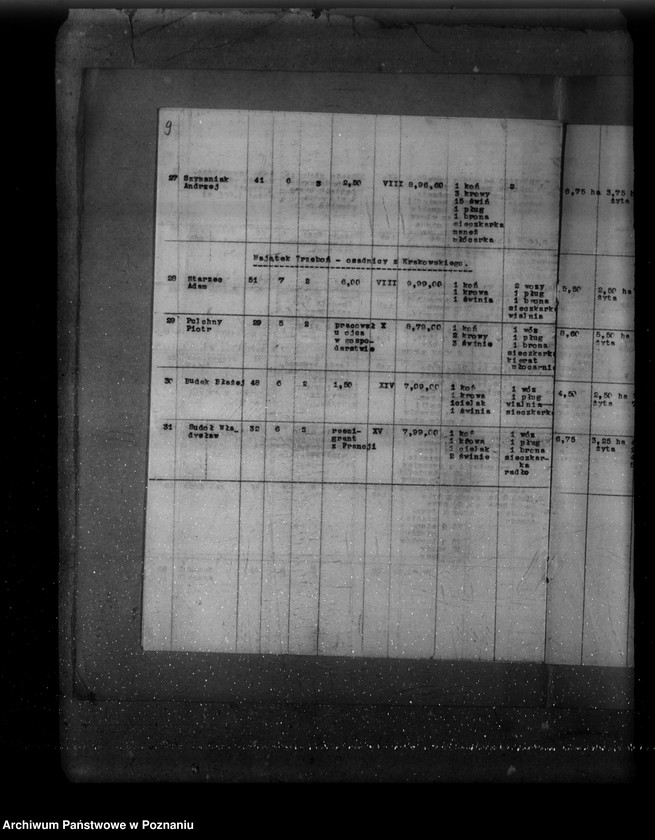 9
27 Szymaniak 41 6 3 2,50 VIII 8,96,60 1 koń 2 6,75 ha 3,75 h
Andrzej 3 krowy żyta
15 świń
1 pług
1 brona
sieczkarka
maneż
młócarka
Majątek Trzeboń - osadnicy z Krakowskiego.
28 Starzec 51 7 2 6,00 VIII 9,09,00 1 koń 2 wozy 5,50 2,50 ha
Adam 1 krowa 1 pług żyta
1 świnia 1 brona
sieczkark
wialnia
29 Polchny 29 5 2 pracował X 8,79,00 1 koń 1 wóz 8,60 5,50 ha
Piotr u ojca 2 krowy 1 pług żyta
w gospo- 3 świnie 1 brona
darstwie sieczkark
kierat
młocarni
30 Budek Błażej 48 6 2 1,50 XIV 7,09,00 1 koń 1 wóz 4,50 2,50 ha
1 krowa 1 pług żyta
1cielak wialnia
1 świnia sieczkark
31 Budek Wła_ 32 6 5 reemi- XV 7,99,00 1 koń 1 wóz 6,75 3,25 ha
dysław grant 1 krowa 1 pług żyta
z Francji 1 cielak 1 brona
2 świnie sieczkar-
ka
radło
Archiwum Państwowe w Poznaniu